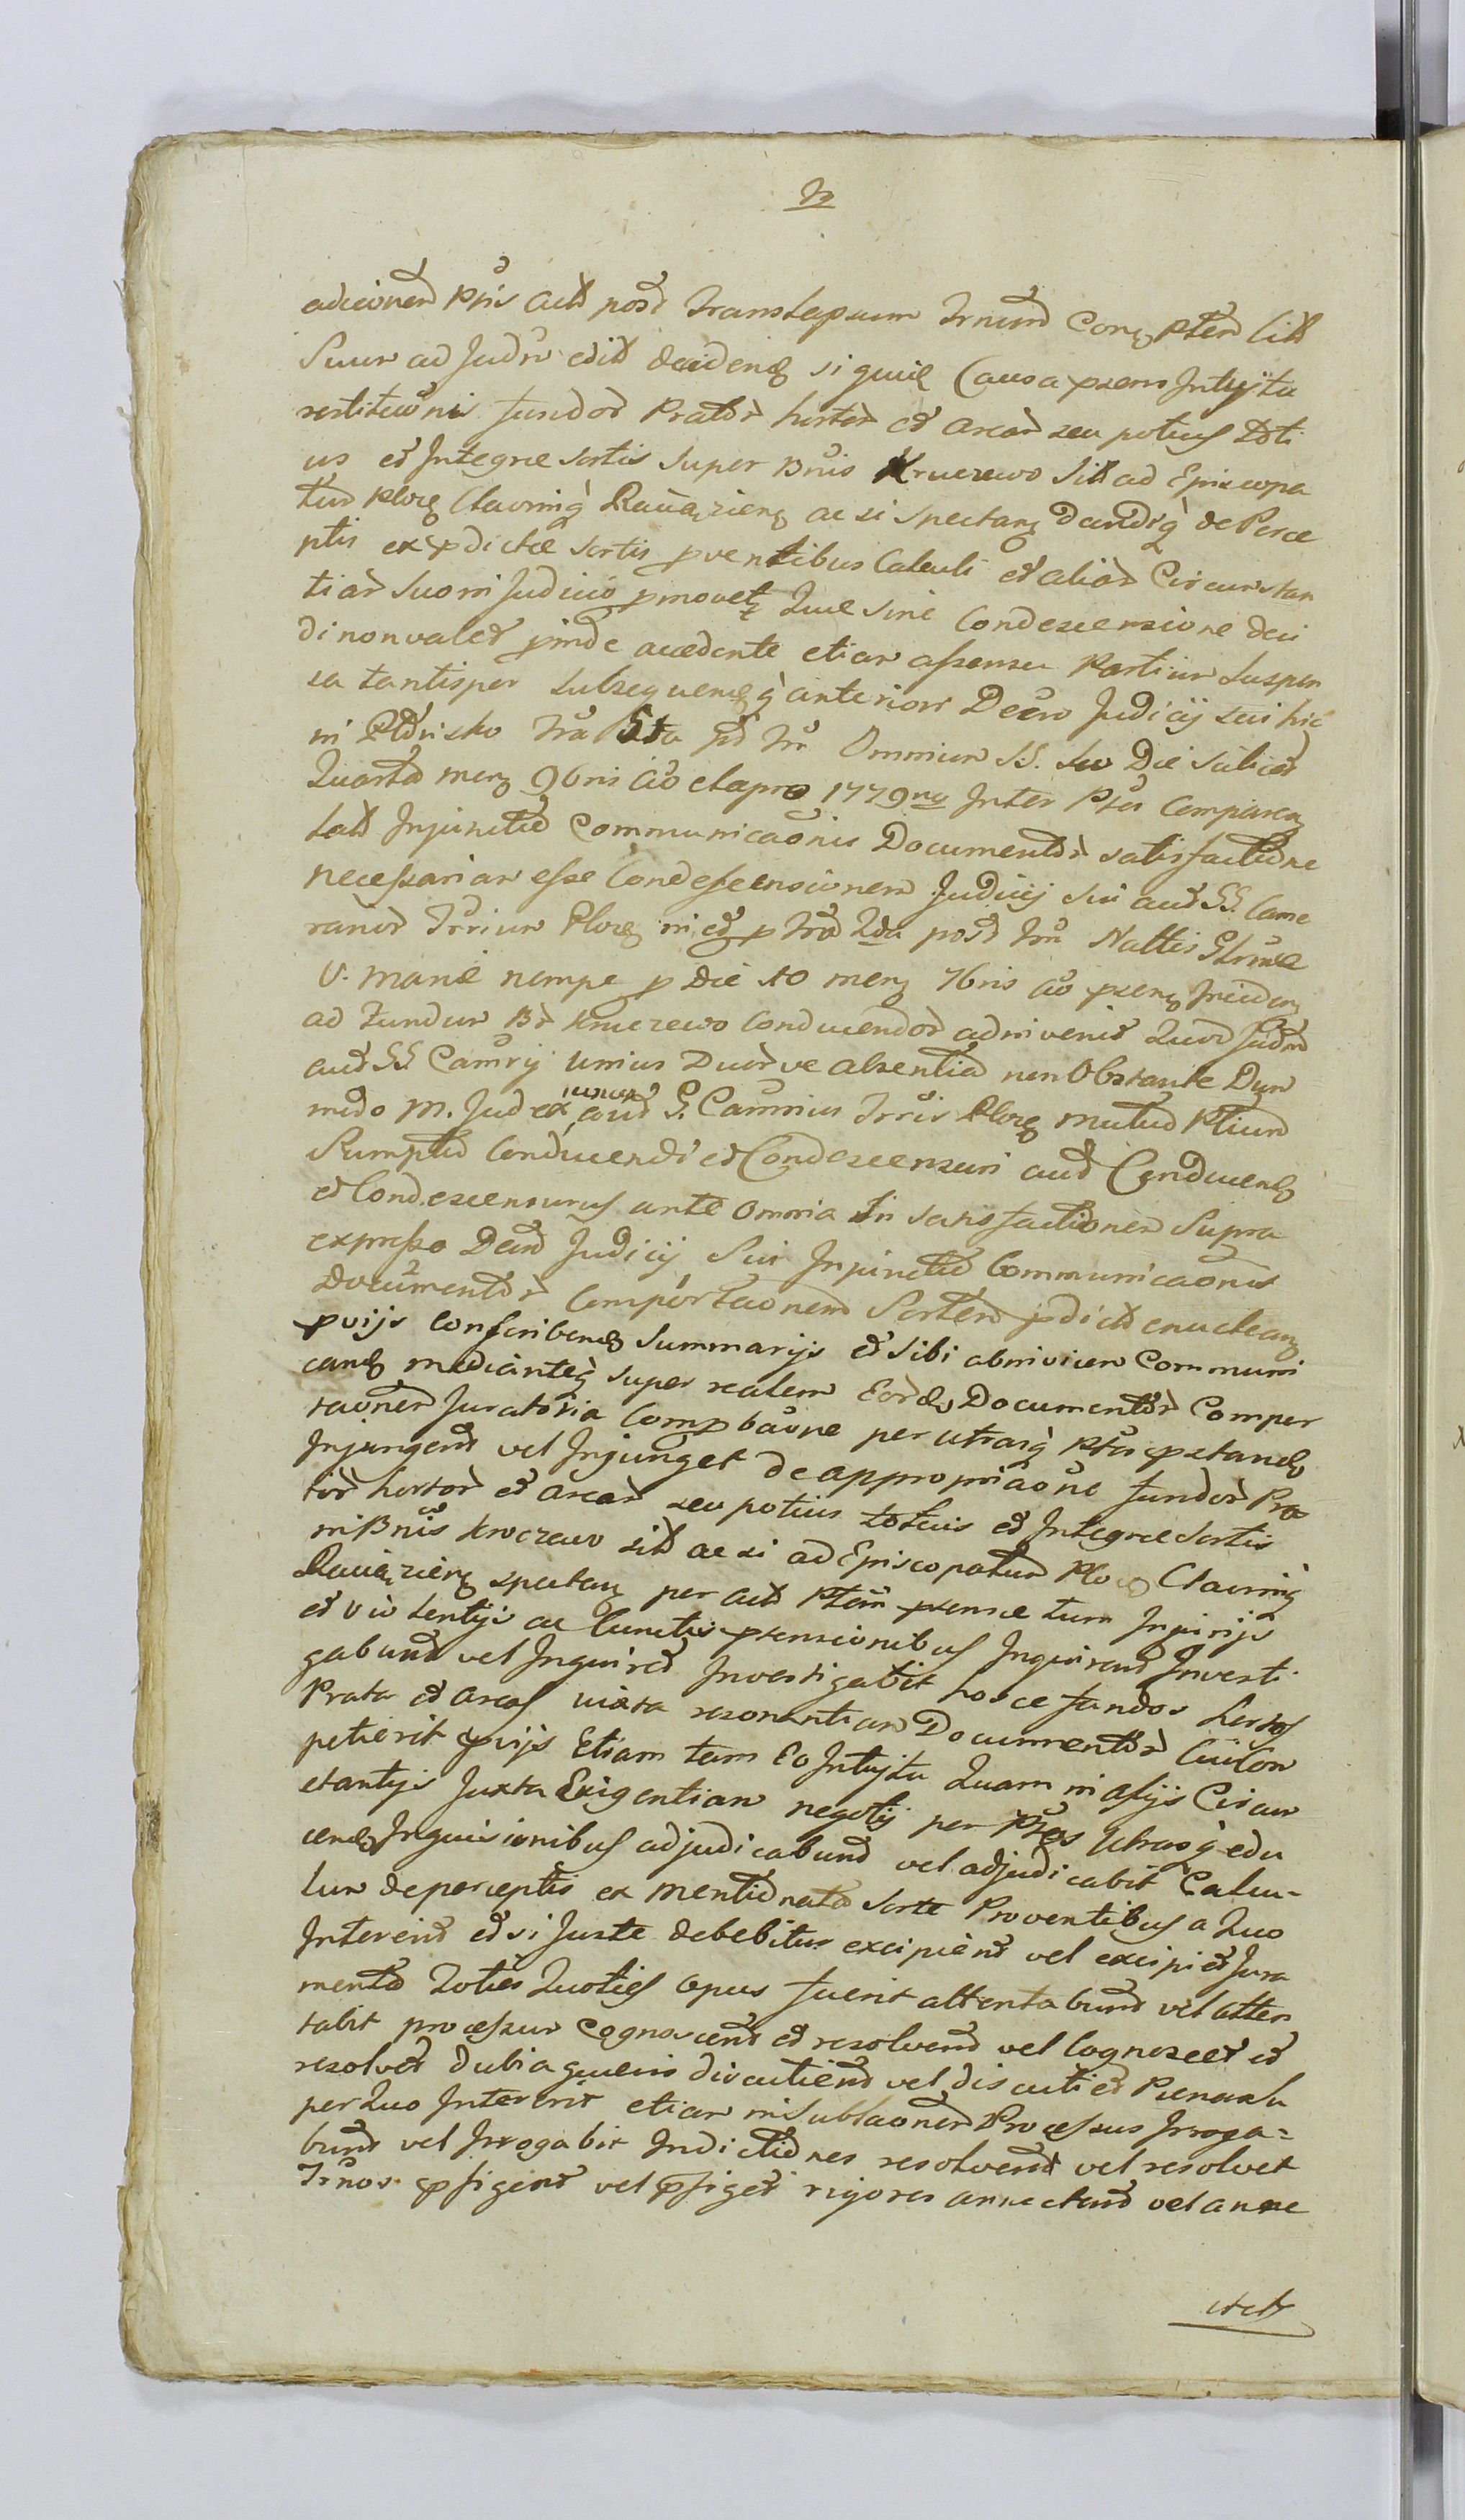 adicionem Ptis Actt post Translapsum Trnum Conq Ptem Citt
Suum ad Judm edit decidenq si quiq Causa psens Intuytu
restituonis fundor Prator hortor et arear seu potius Toti
us et Integræ sortis super Bnis Kruczewo Sitt ad Episcopa
tum Plocq Clavmq Raciązienq ac si spectanq dandiq de Perce
ptis ex pdictæ sortis pventibus Calculi et alior Circumstan
tiar suo in Judicio pmovetz Quæ sine Condescensione deci
di non valet pinde accedente etiam assensu Partium suspen
sa tantisper subsequenq anteriori Decro Judicij sui hic
in Płońsko fra 5ta pt fm Omnium SS. seu Die Sabbat
Quarta menq 9bris Ao elapso 1779no Inter Ptes Comparenq
latt Injunctio Communicaonis Documentor satisfactione
necessariam esse Condescensionem Judicij sui aut SS. Came
rarior Trrium Plocq in et p fra 2da post fm Nattis Glrmæ
V. Mariæ nempe p Die 10 menq 7bris Ao psenq Inciden
ad fundum Br Kruczewo Conducendor adinvenit Quod Judm
aut SS Camrij Unius Duor ve absentia non Obstante Dum
modo M. Judex unus aut G. Camrius Trris Plocq mutuo Ptium
Sumptu Conducendi et Condescensuri aut Conducenq
et Condescensurus ante omnia In satisfactionem Supra
expresso Decro Judicij Sui Injunctio Communicaonis
Documentor Comportaonem Sortem pdictt enucleanq
pvijs Conscribenq Summarijs et sibi abinvicem Communi
canq mediinteq super realem Eordq Documentor Compor
taonem Juratoria Compbaone per utrasq Ptes pstandq
Injungent vel Injunget de appropriaone fundor Pra
tor hortor et arear seu potius totius et Integræ Sortis
in Bnis Kroczewo sitt ac si ad Episcopatum Plocq Clavmq
Raciązienq spectanq per actt Ptem psensæ tum Injurijs
et Violentijs ac Cunctis ptensionibus Inquirent Investi
gabunt vel Inquiret Investigabit hosce fundos hortos
Prata et areas iuxta resonantiam Documentor Cui Con
petierit pvijs Etiam tam Eo Intuytu Quam in alijs Circum
stantijs Juxta Exigentiam negotij per Ptes Utrasq edu
cenq Inquisionibus adjudicabunt vel adjudicabit Calcu-
lum de perceptis ex mentionata Sorte Proventibus a Quo
Intererit et si Juste debebitur excipient vel excipiet Jura
menta Toties Quoties opus fuerit attentabunt vel atten
tabit processum Cognoscent et resolvent vel Cognoscet et
resolvet dubia quævis discutient vel discutiet Pœnas Lu
per Quo Intererit etiam in Sublaonem Processus Irroga=
bunt vel Irrogabit Indictiones resolvent vel resolvet
Trnos pfigent vel pfiget rigores annectent vel anne
ctet